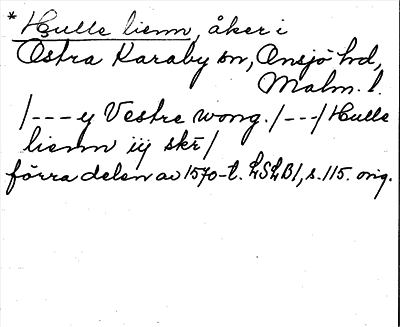 * Hulle lienn, åker i
Östra Karaby sn, Onsjö hd,
Malm. l.
/---y Vestre wong. /---/ Hulle
lienn iij skr̄/
förra delen av 1570-t. LSLB1, s. 115. orig.